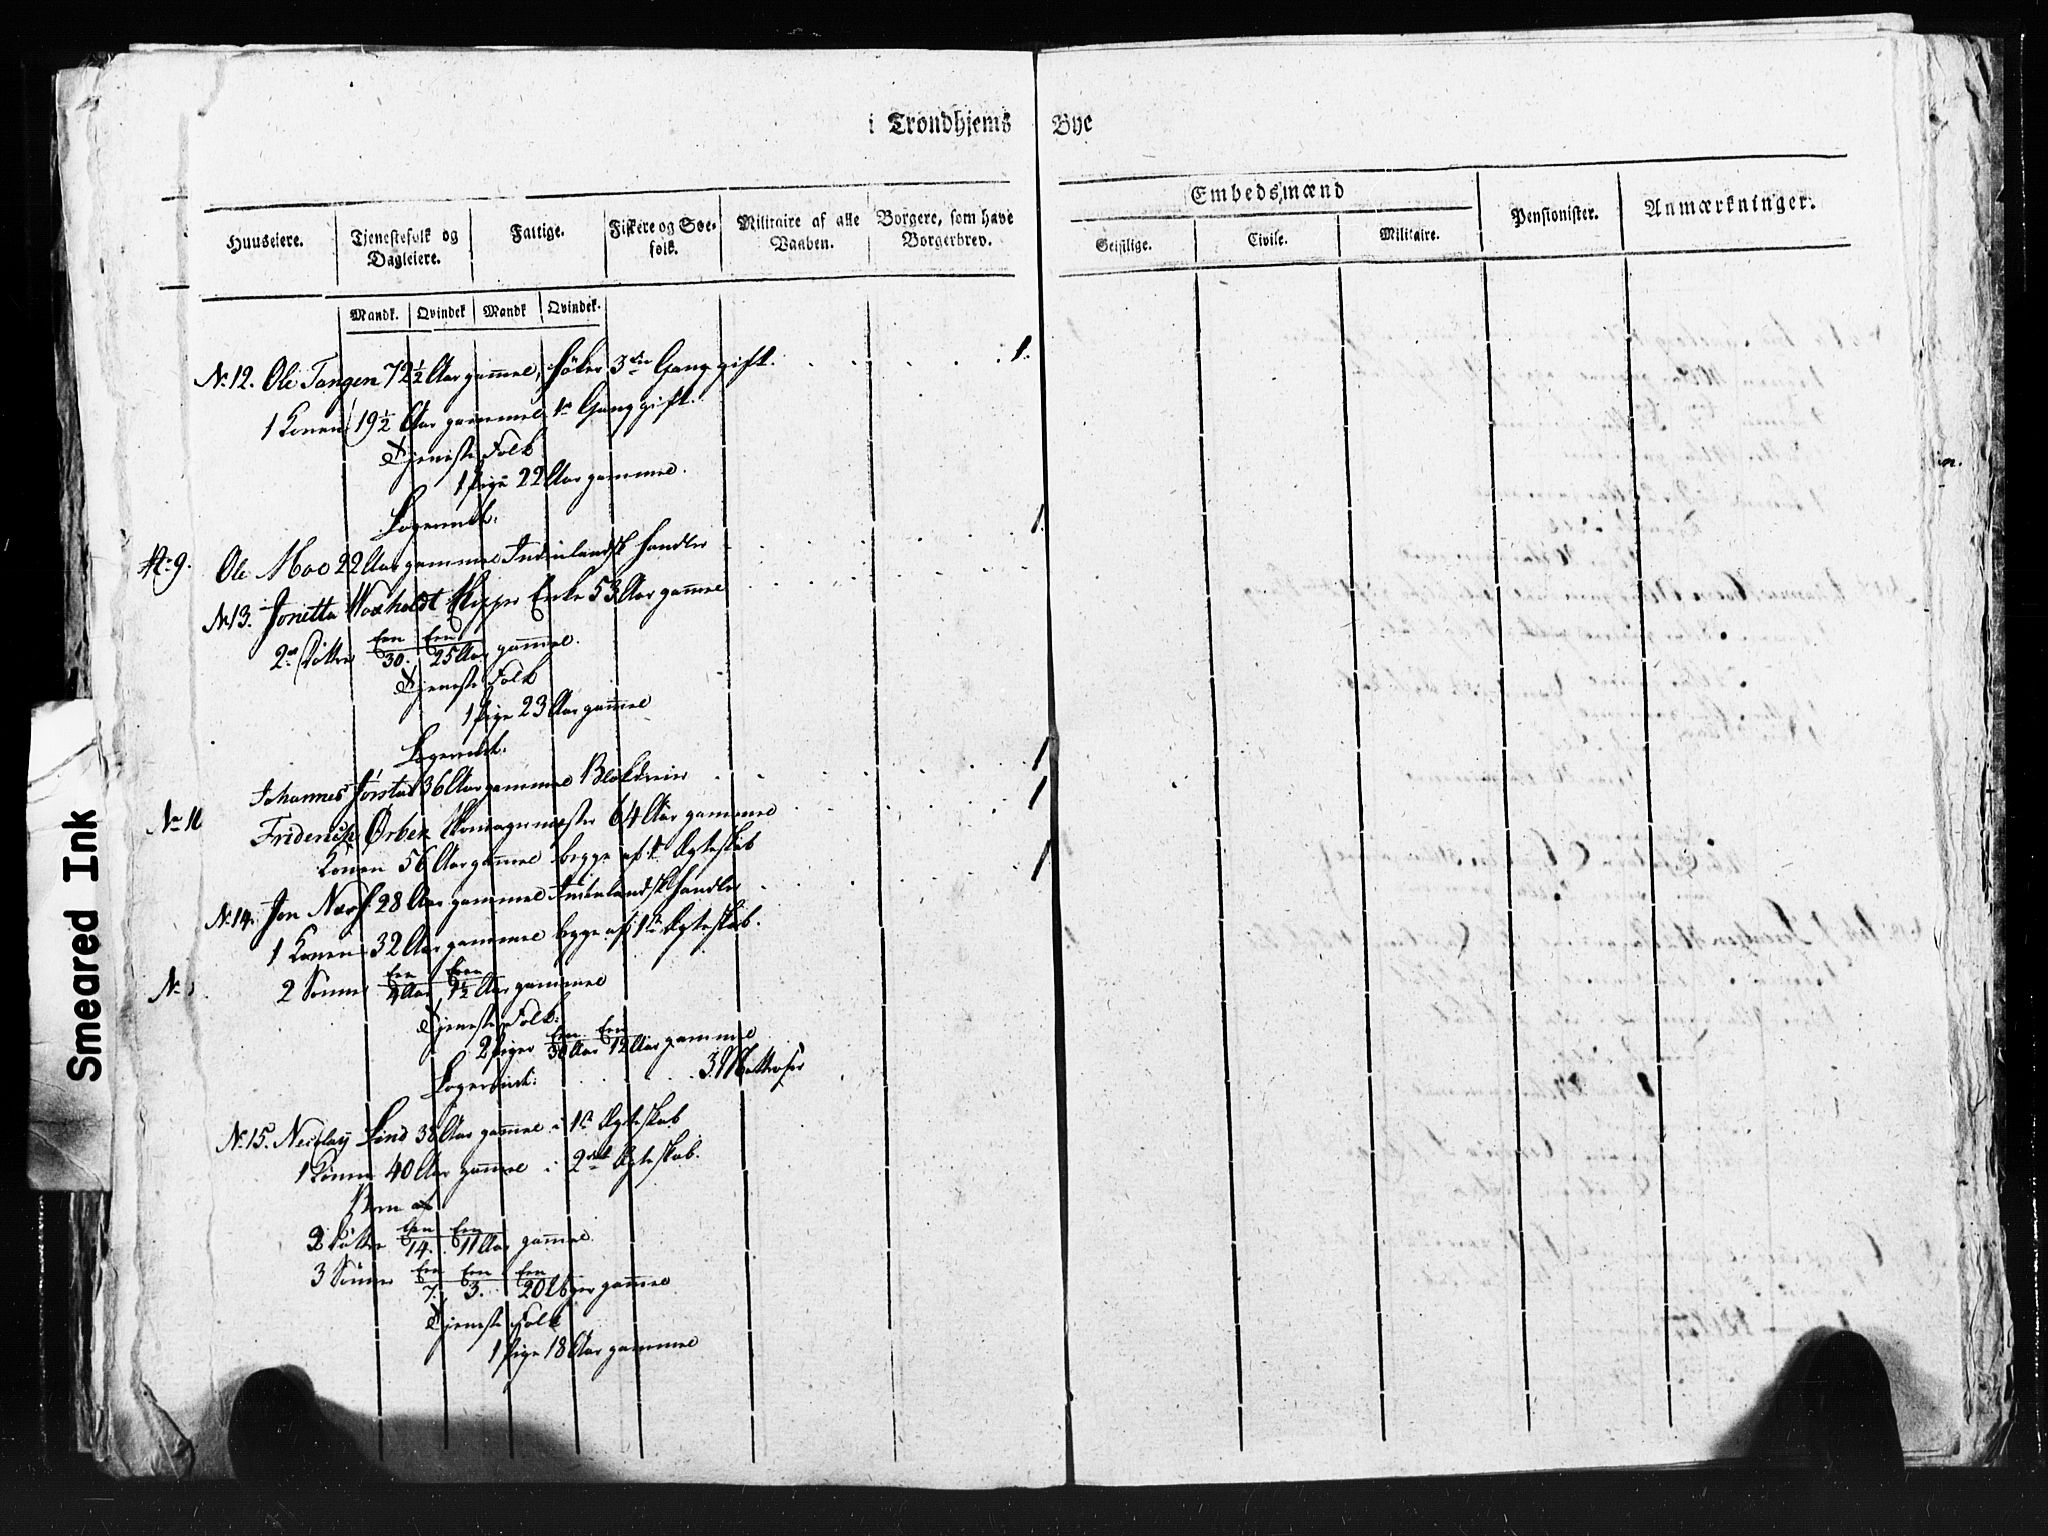 i Trondhjems Bye
Huuseiere. Tjenestefolk og Dagleiere. Fattige. Fiskere og Søefolk. Militaire af alle Vaaben. Borgere, som have Borgerbrev. Embedsmænd Pensionister. Anmærkninger.
Geistlige. Civile. Militaire.
Mandk. Qvindek Mandk Qvindek.
No 12. Ole Tangen 72½ Aar gammel, Høker 3die Gang gift. 1.
1 Konen 19½ Aar gammel 1te Gang gift.
Tjeneste Folk
1 Pige 22 Aar gammel.
Logerende.
No 9. Ole Moe 22 Aar gammel Indenlandsk Handler 1.
No 13. Jonetta Woxholdt Skipper Enke 53 Aar gammel
2de Døttre Een 30. Een 25 Aar gammel.
Tjeneste Folk
1 Pige 23 Aar gammel
Logerende.
Johannes Jørstad 36 Aar gammel Blokdreier 1
Friderich Ørbek Skomagermester 64 Aar gammel 1
Konen 56 Aar gammel begge af 1te Ægteskab
No 14. Jon Næss 28 Aar gammel Indenlandsk Handler 1
1 Konen 32 Aar gammel begge af 1te Ægteskab.
No
2 Sønner Een 4 Aar Een 1½ Aar gammel
Tjeneste Folk:
2 Piger Een 30 Aar Een 12 Aar gammel
Logerende: 3. Mattroser
No 15. Nicolay Lund 38 Aar gammel i 1te Ægteskab
1 Konen 40 Aar gammel i 2det Ægteskab.
Børn af
2 Døttre Een 14. Een 11 Aar gammel.
3 Sønner Een 7. Een 3. Een 20 Uger gammel
Tjeneste Folk
1 Pige 18 Aar gammel
Smeared Ink